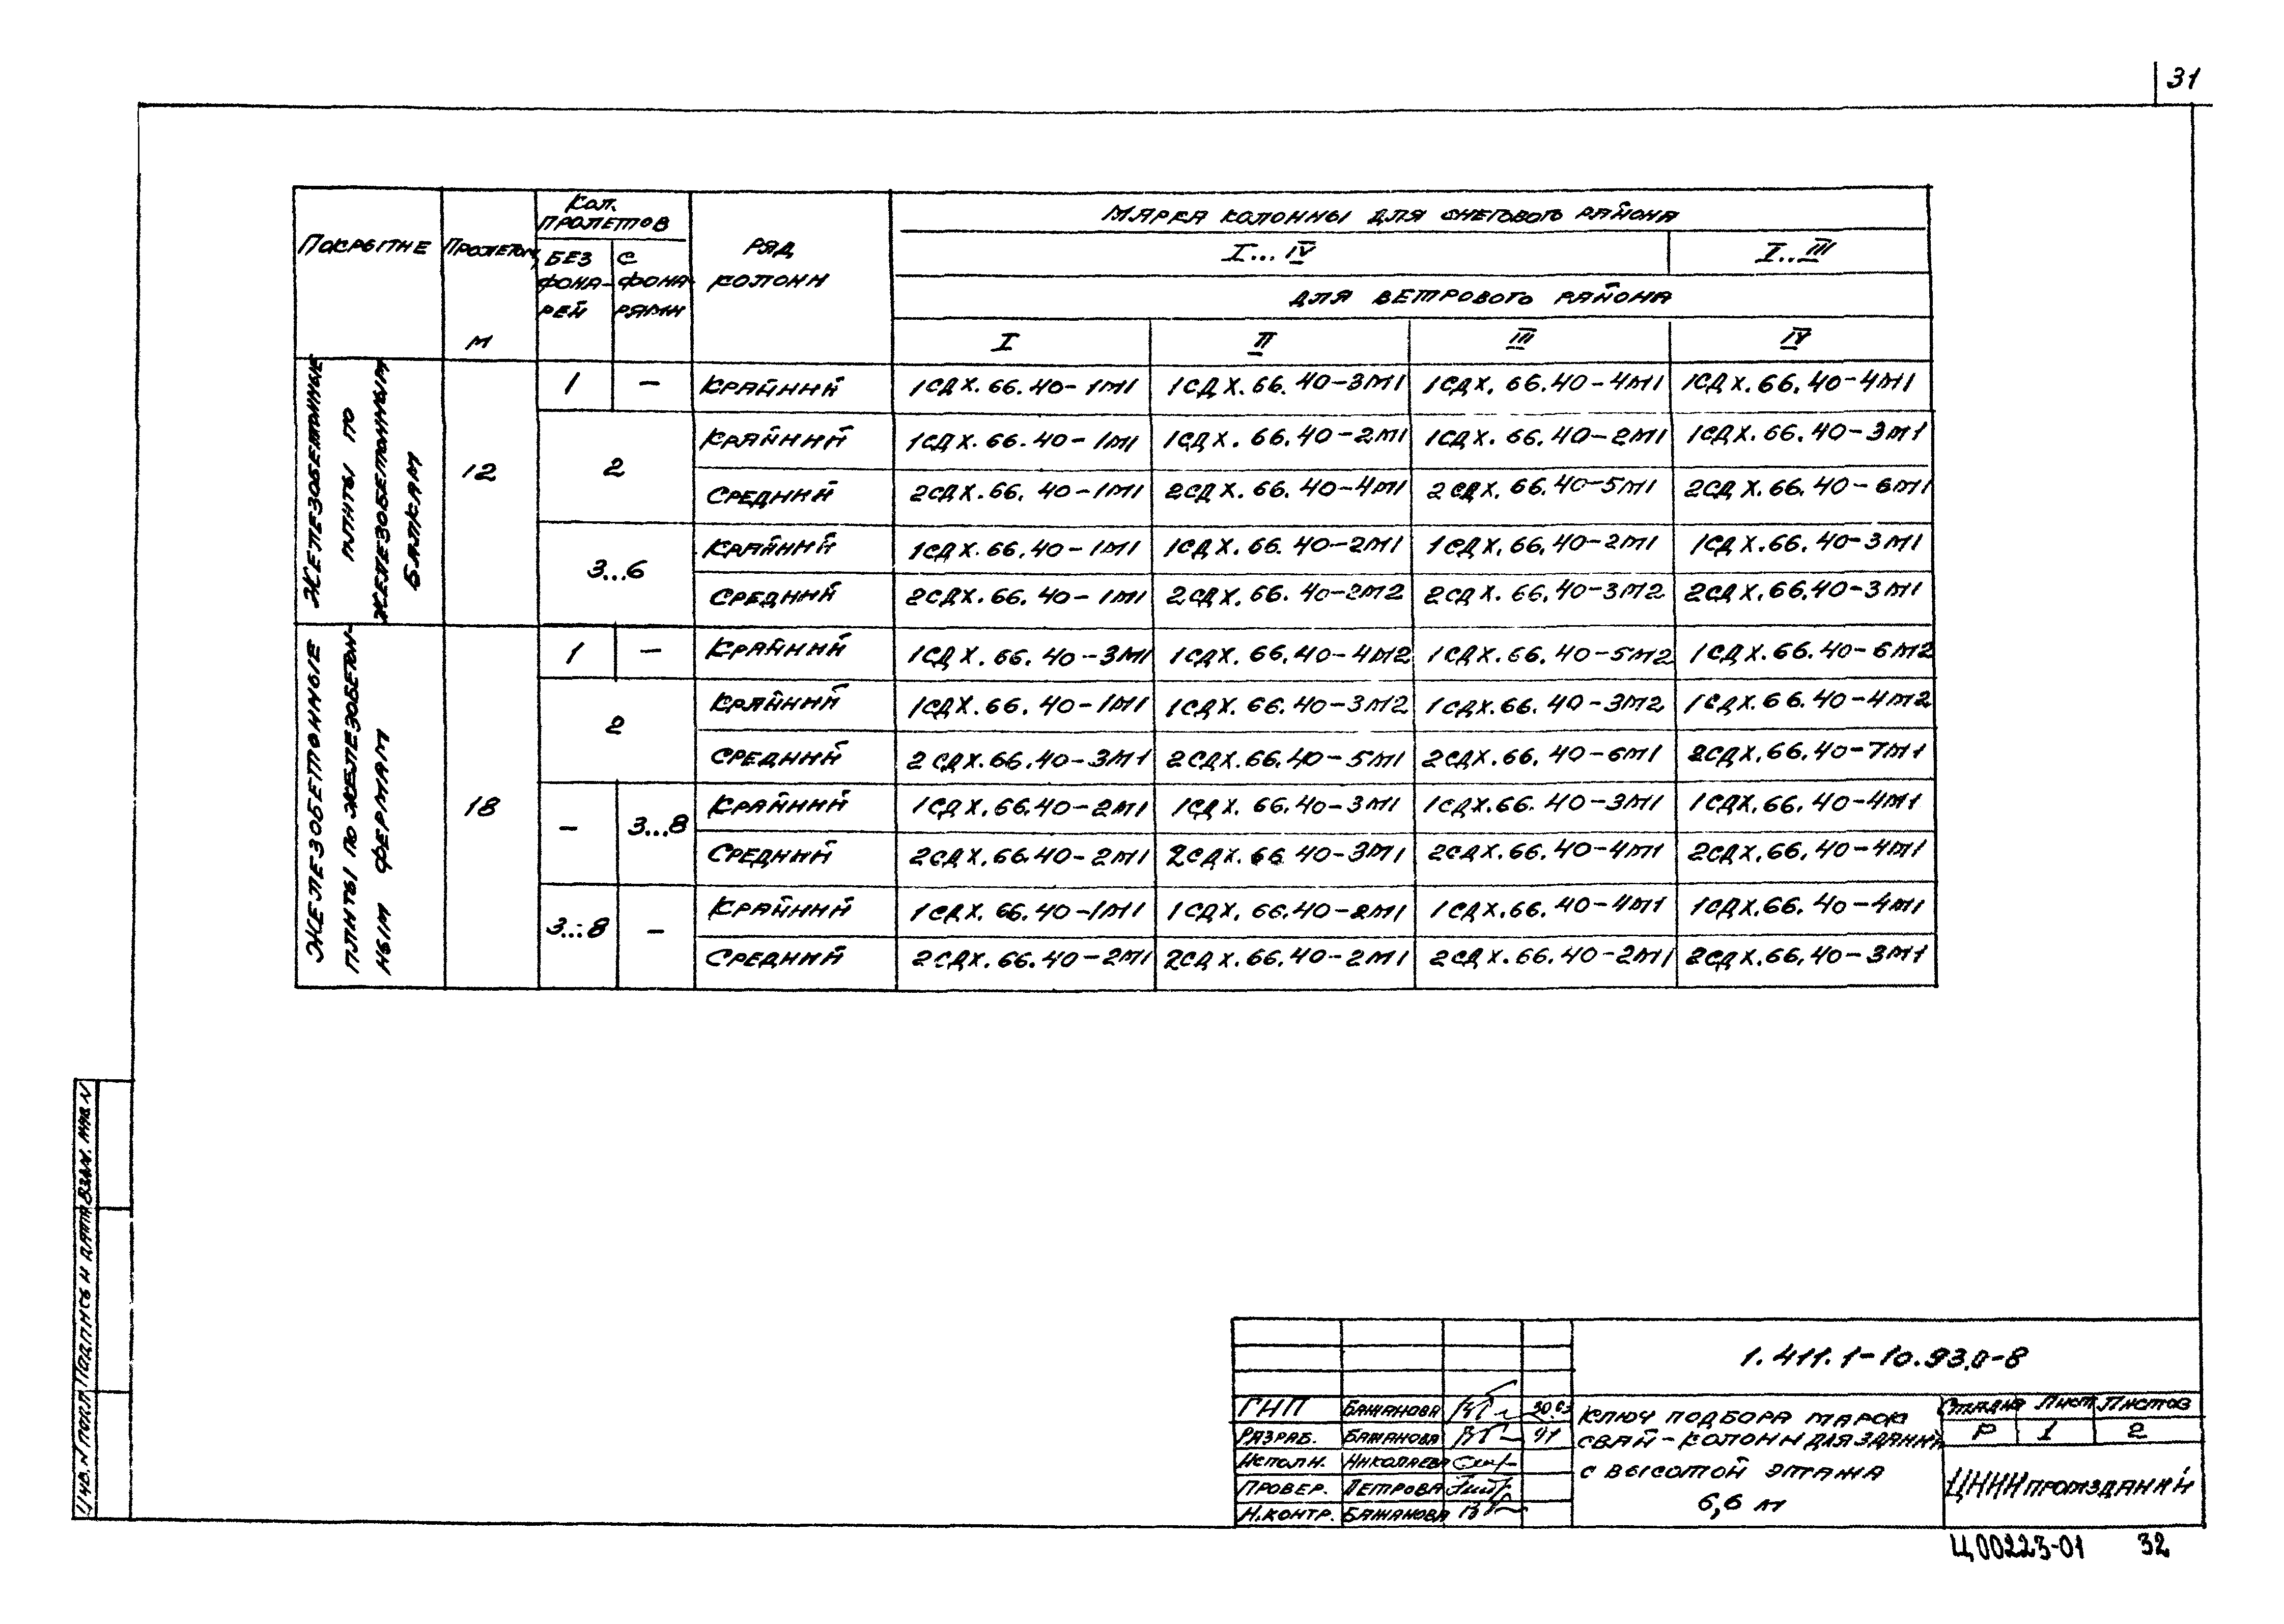 31
Покрытие
Пролетом,
М
Кол.
пролетов
без
фона-
рей
с
фона-
рями
Ряд
колонн
Марка колонны для снегового района
I...IV
I..III
для ветрового района
I
II
III
IV
Железобетонные
плиты по
железобетонным
балкам
12
1 — Крайний 1СДХ.66.40-1М1 1СДХ.66.40-3М1 1СДХ.66.40-4М1 1СДХ.66.40-4М1
2
Крайний 1СДХ.66.40-1М1 1СДХ.66.40-2М1 1СДХ.66.40-2М1 1СДХ.66.40-3М1
Средний 2СДХ.66.40-1М1 2СДХ.66.40-4М1 2СДХ.66.40-5М1 2СДХ.66.40-6М1
3...6
Крайний 1СДХ.66.40-1М1 1СДХ.66.40-2М1 1СДХ.66.40-2М1 1СДХ.66.40-3М1
Средний 2СДХ.66.40-1М1 2СДХ.66.40-2М2 2СДХ.66.40-3М2 2СДХ.66.40-3М1
Железобетонные
плиты по железобетон-
ным фермам
18
1 — Крайний 1СДХ.66.40-3М1 1СДХ.66.40-4М2 1СДХ.66.40-5М2 1СДХ.66.40-6М2
2
Крайний 1СДХ.66.40-1М1 1СДХ.66.40-3М2 1СДХ.66.40-3М2 1СДХ.66.40-4М2
Средний 2СДХ.66.40-3М1 2СДХ.66.40-5М1 2СДХ.66.40-6М1 2СДХ.66.40-7М1
— 3...8
Крайний 1СДХ.66.40-2М1 1СДХ.66.40-3М1 1СДХ.66.40-3М1 1СДХ.66.40-4М1
Средний 2СДХ.66.40-2М1 2СДХ.66.40-3М1 2СДХ.66.40-4М1 2СДХ.66.40-4М1
3...8 —
Крайний 1СДХ.66.40-1М1 1СДХ.66.40-2М1 1СДХ.66.40-4М1 1СДХ.66.40-4М1
Средний 2СДХ.66.40-2М1 2СДХ.66.40-2М1 2СДХ.66.40-2М1 2СДХ.66.40-3М1
Инв. N подл. Подпись и дата Взам. инв. N
1.411.1-10.93.0-8
ГИП Бажанова
Разраб. Бажанова 91
Исполн. Николаева
Провер. Петрова
Н.контр. Бажанова
Ключ подбора марок
свай-колонн для зданий
с высотой этажа
6,6 м
Стадия Лист Листов
Р 1 2
ЦНИИпромзданий
Ц00223-01 32